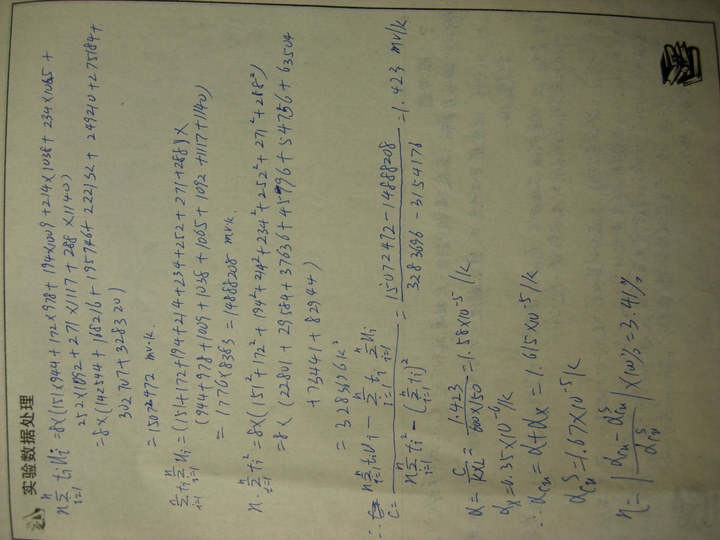 实验数据处理
n∑tiUi = 8×(151×944+172×978+194×1009+214×1038+234×1065+
252×1092+271×1117+288×1140)
=8×(142544+168216+195746+222132+249210+275184+
302707+328320)
=15072472 mv·k.
∑ti∑Ui=(151+172+194+214+234+252+271+288)×
(944+978+1009+1038+1065+1092+1117+1140)
= 1776×8383 = 14888208 mv·k.
n·∑ti²=8×(151²+172²+194²+214²+234²+252²+271²+288²)
=8×(22801+29584+37636+45796+54756+63504
+73441+82944)
= 3283696k²
∴ C= (n∑tiUi - ∑ti∑Ui)/(n∑ti² - (∑ti)²) = (15072472-14888208)/(3283696-3154176) =1.423 mv/k
α= C/(K×L) = 1.423/(600×150) =1.58×10⁻⁵/k
αx=0.35×10⁻⁶/k
∴ αcu = α+αx = 1.615×10⁻⁵/k
αcuˢ=1.67×10⁻⁵/k
η=|(αcu-αcuˢ)/αcuˢ|×100%=3.41%